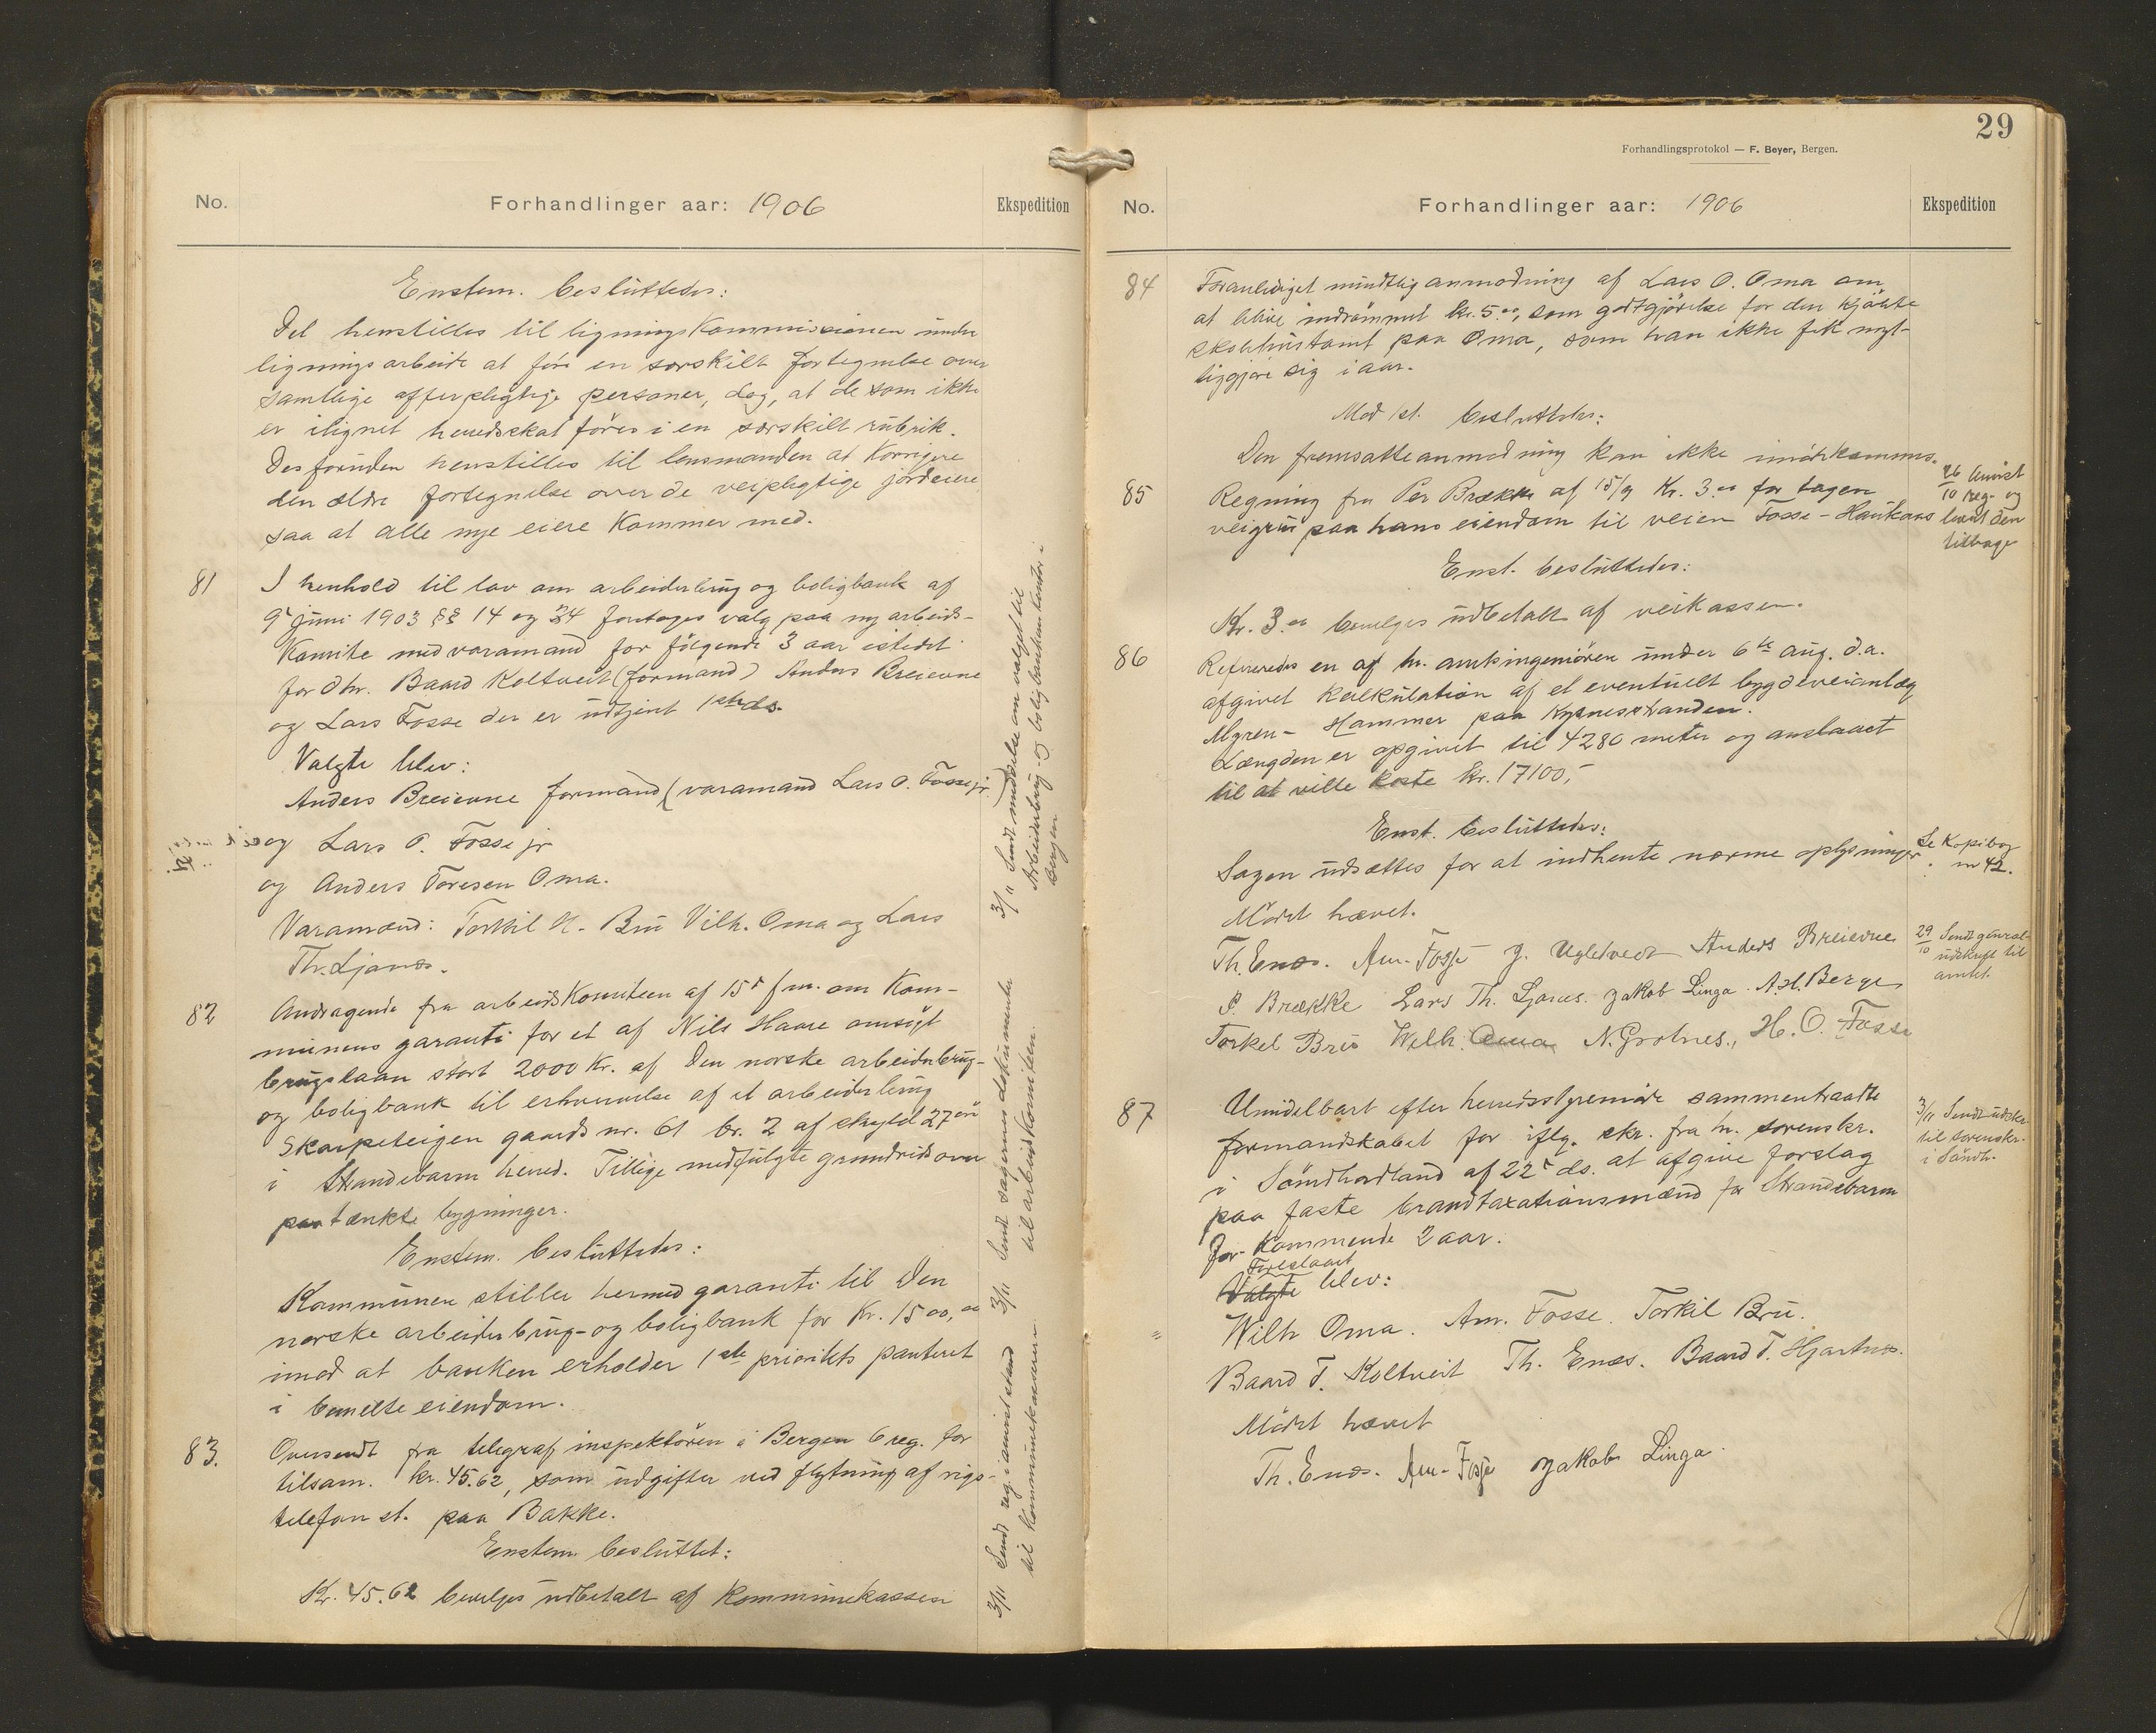 No. Forhandlinger aar: 1906 Ekspedition
Enstem. besluttedes:
Det henstilles til ligningskommissionen under
ligningsarbeide at føre en særskilt fortegnelse over
samtlige offerpligtige personer, dog, at de som ikke
er ilignet herredsskat føres i en særskilt rubrik.
Desforuden henstilles til lensmanden at korrigere
den ældre fortegnelse over de veipligtige jordeiere
saa at alle nye eiere kommer med.
81 I henhold til lov om arbeiderbrug og boligbank af
9de juni 1903 §§ 14 og 34 foretoges valg paa ny arbeids-
komite med varamænd for følgende 3 aar istedet
for d'hr. Baard Koltveit (formand) Anders Breievne
og Lars Fosse der er udtjent 1ste ds.
Valgte blev:
Anders Breievne formand (varamand Lars O. Fosse jr.
og Lars O. Fosse jr
og Anders Toresen Oma.
Varamænd: Torkil N. Bru Vilh. Oma og Lars
Th. Ljones.
82 Andragende fra arbeidskomiteen af 15de f.m. om kom-
munens garanti for et af Nils Haare ansøgt
brugslaan stort 2000 kr. af Den norske arbeiderbrug-
og boligbank til erhvervelse af et arbeiderbrug
Skarpeteigen gaards nr. 61 br. 2 af skyld 27 øre
i Strandebarm herred. Tillige medfulgte grundrids over
paatænkte bygninger.
Enstem. besluttedes:
Kommunen stiller hermed garanti til Den
norske arbeiderbrug- og boligbank for kr. 1500,00
imod at banken erholder 1ste prioritets panteret
i bemeldte eiendom.
83. Oversendt fra telegrafinspektøren i Bergen 6 reg. for
tilsam. kr. 45.62, som udgifter ved flytning af rigs-
telefon st. paa Bakke.
Enstem. besluttet:
Kr. 45.62 bevilges udbetalt af kommunekassen
3/11 Sendt meddelelse om valget til
Arbeiderbrug- og boligbankens kontor i
Bergen
3/11 Sendt sagernes dokumenter
til arbeidskomiteen.
3/11 Sendt reg. i anvist stand
til kommunekassereren.
29
Forhandlingsprotokol — F. Beyer, Bergen.
No. Forhandlinger aar: 1906 Ekspedition
84 Foranlediget mundtlig anmodning af Lars O. Oma om
at blive indrømmet kr. 5.00, som godtgjørelse for den kjøbte
skolehustomt paa Oma, som han ikke fik nyt-
tiggjøre sig i aar.
Mod 1 st. besluttedes:
Den fremsatte anmodning kan ikke imødekommes.
85 Regning fra Per Brække af 15/9 kr. 3.00 for tagen
veigrus paa hans eiendom til veien Fosse - Haukaas
26/10 Anvist
reg. og
levert den
tilbage
Enst. besluttedes:
Kr. 3.00 bevilges udbetalt af veikassen.
86 Refereredes en af hr. amtsingeniøren under 6te aug. d.a.
afgivet kalkulation af et eventuelt bygdeveianlæg
Myren - Hammer paa Kysnesstranden.
Længden er opgivet til 4280 meter og anslaaet
til at ville koste kr. 17100,-
Enst. besluttedes:
Sagen udsættes for at indhente nærme oplysninger.
Se Kopibog
nr 42.
Mødet hævet.
Th. Enæs. Am. Fosse J. Ugletveit Anders Breievne
P. Brække Lars Th. Ljones. Jakob Linga. A.H. Berge
Torkel Bru Wilh. Oma N. Grotnes., H. O. Fosse
29/10 Sendt general-
udskrift til
amtet.
87 Umidelbart efter herredsstyremøde sammentraadte
formandskabet for iflg. skr. fra hr. sorenskr.
i Søndhordland af 22de ds. at afgive forslag
paa faste brandtaxationsmænd for Strandebarm
for kommende 2 aar.
3/11 Sendt udskr.
til sorenskr.
i Søndh.
Foreslaaet
Valgte blev:
Wilh Oma. Am. Fosse. Torkil Bru.
Baard T. Koltveit Th. Enæs. Baard T. Hjartnæs.
Mødet hævet
Th. Enæs. Am. Fosse Jakob Linga.